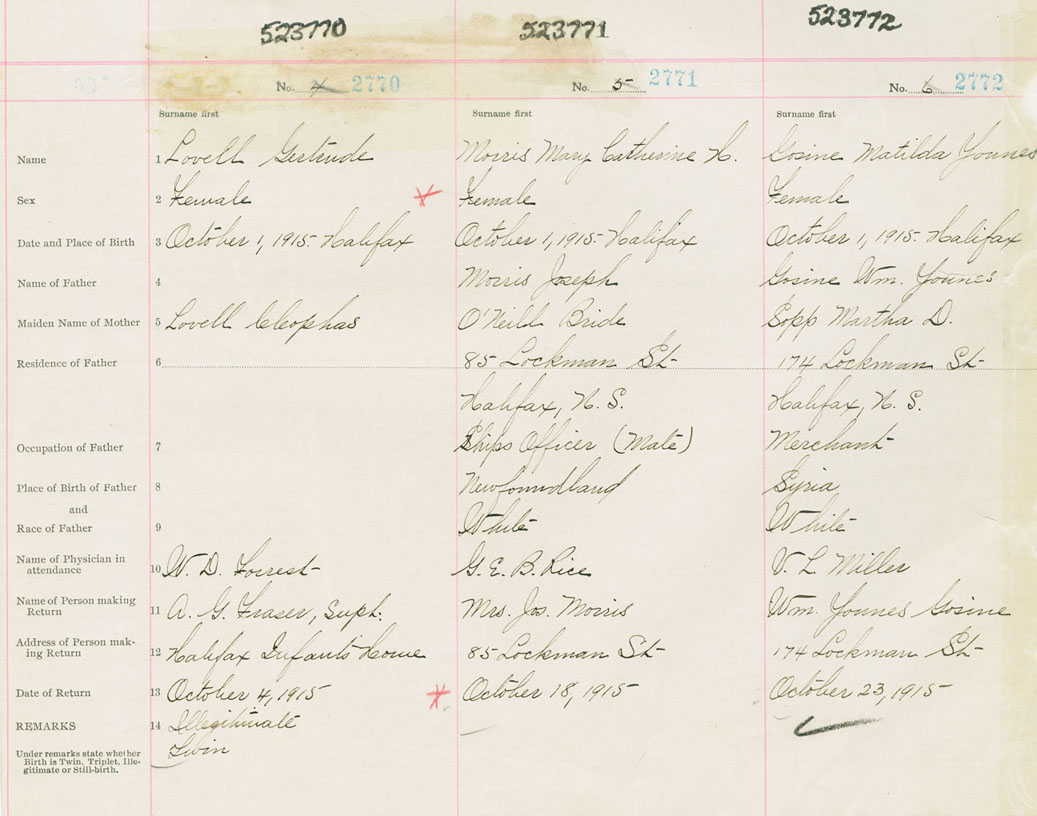 523770 523771 523772
No. 4 2770 No. 5 2771 No. 6 2772
Surname first Surname first Surname first
Name 1 Lovell Gertrude Morris Mary Catherine H. Gosine Matilda Younes
Sex 2 Female Female Female
Date and Place of Birth 3 October 1, 1915. Halifax October 1, 1915. Halifax October 1, 1915. Halifax
Name of Father 4 Morris Joseph Gosine Wm. Younes
Maiden Name of Mother 5 Lovell Cleophas O'Neill Bride Sopp Martha D.
Residence of Father 6 85 Lockman St 174 Lockman St
Halifax, N. S. Halifax, N. S.
Occupation of Father 7 Ships Officer (Mate) Merchant
Place of Birth of Father 8 Newfoundland Syria
and
Race of Father 9 White White
Name of Physician in
attendance 10 W. D. Forrest G. E. B. Rice V. L Miller
Name of Person making
Return 11 A. G. Fraser, Supt. Mrs. Jos. Morris Wm. Younes Gosine
Address of Person mak-
ing Return 12 Halifax Infants Home 85 Lockman St 174 Lockman St
Date of Return 13 October 4, 1915 October 18, 1915 October 23, 1915
REMARKS 14 Illegitimate
Twin
Under remarks state whether
Birth is Twin, Triplet, Ille-
gitimate or Still-birth.